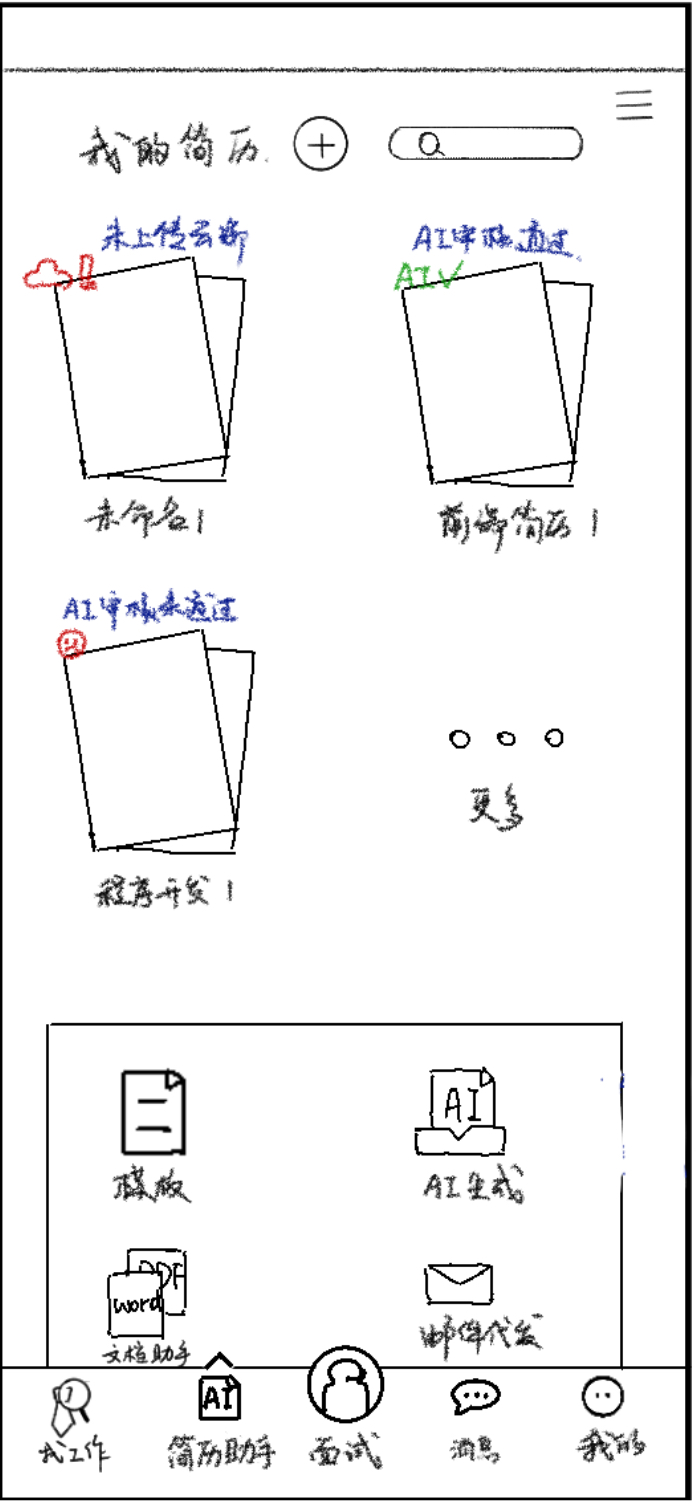 我的简历
未上传云端
AI审核通过
AI✓
未命名1
前端简历1
AI审核未通过
程序开发1
更多
模版
AI
AI生成
PDF
word
文档助手
邮件代发
AI
找工作
简历助手
面试
消息
我的